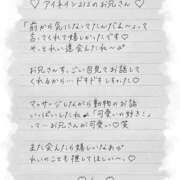 ♡ アイネイン212のお兄さん ♡
「前から気になってたんだよ〜」って
言ってくれて嬉しかったです
やっとれい逢えたね
お兄さんす〜ごい目見てお話して
くれるから…ドキドキしちゃった
マッサージしながら動物のお話
いっぱいしたね「可愛いの好き♡」
って…お兄さんが可愛い♡笑
また会えたら嬉しいなぁ
れいのことも推してほしい〜♡